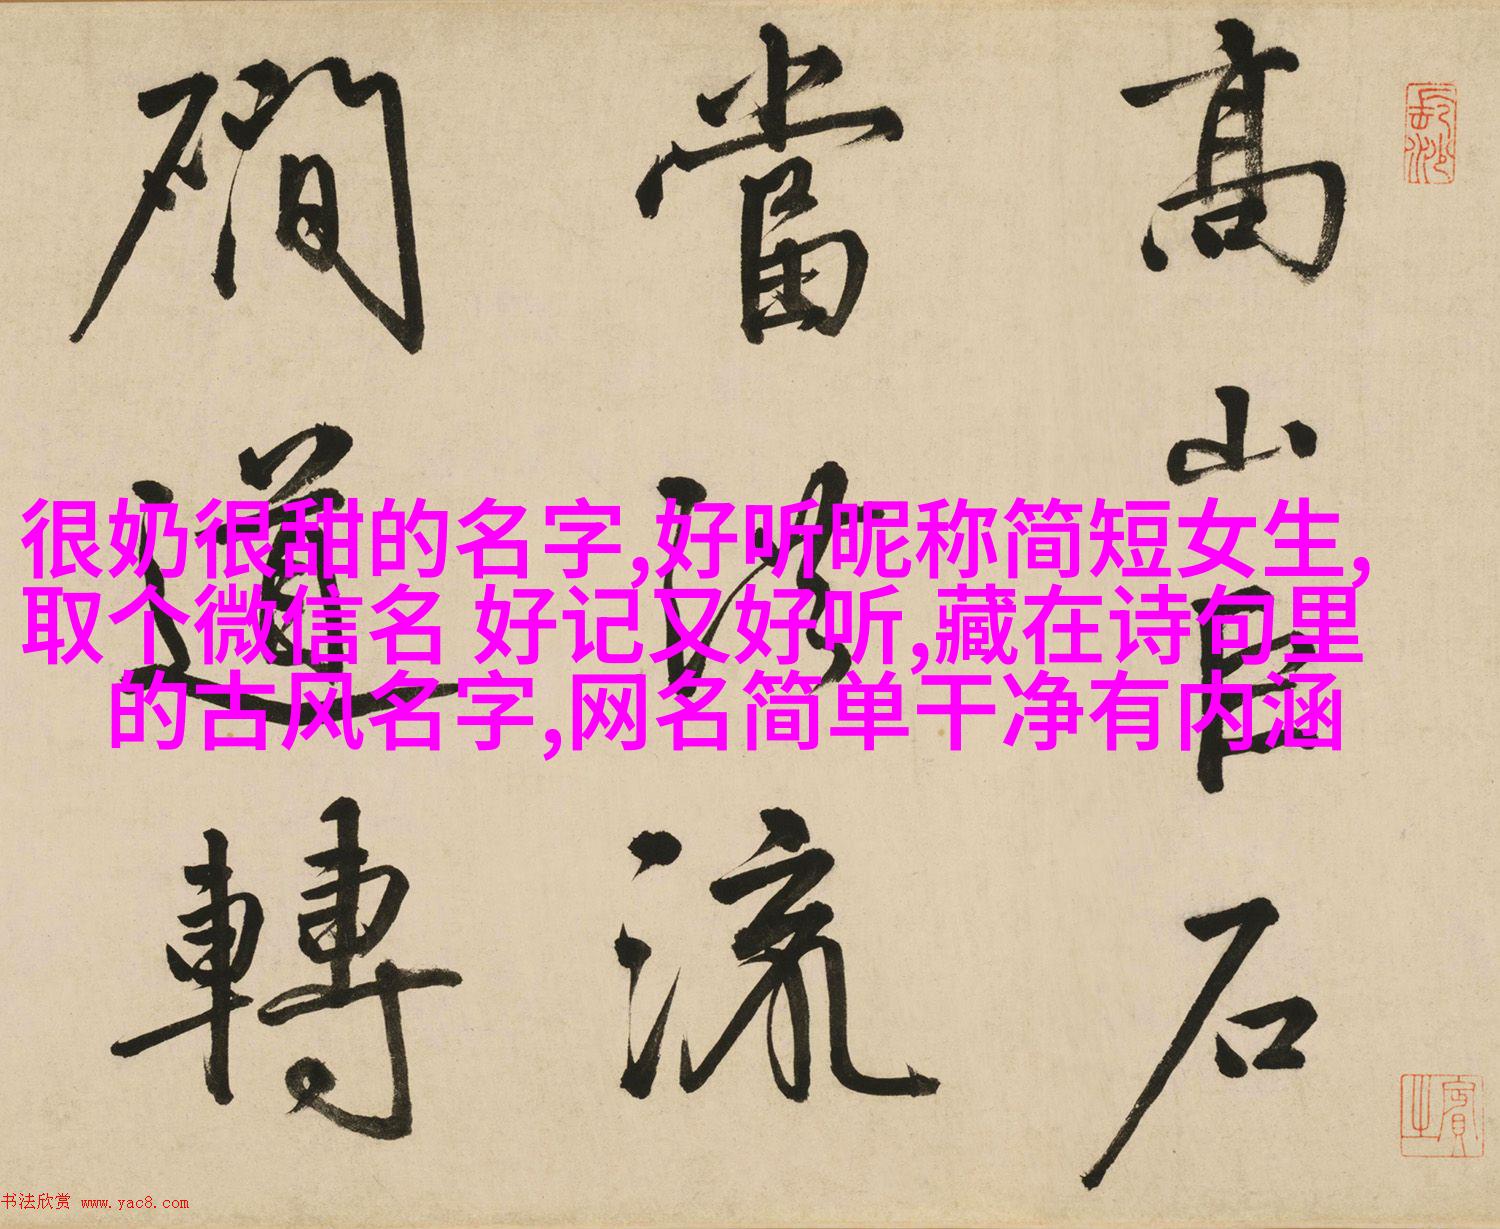 高山昌石
當從流
磵道轉
很奶很甜的名字,好听昵称简短女生,
取个微信名 好记又好听,藏在诗句里
的古风名字,网名简单干净有内涵
书法欣赏 www.yac8.com